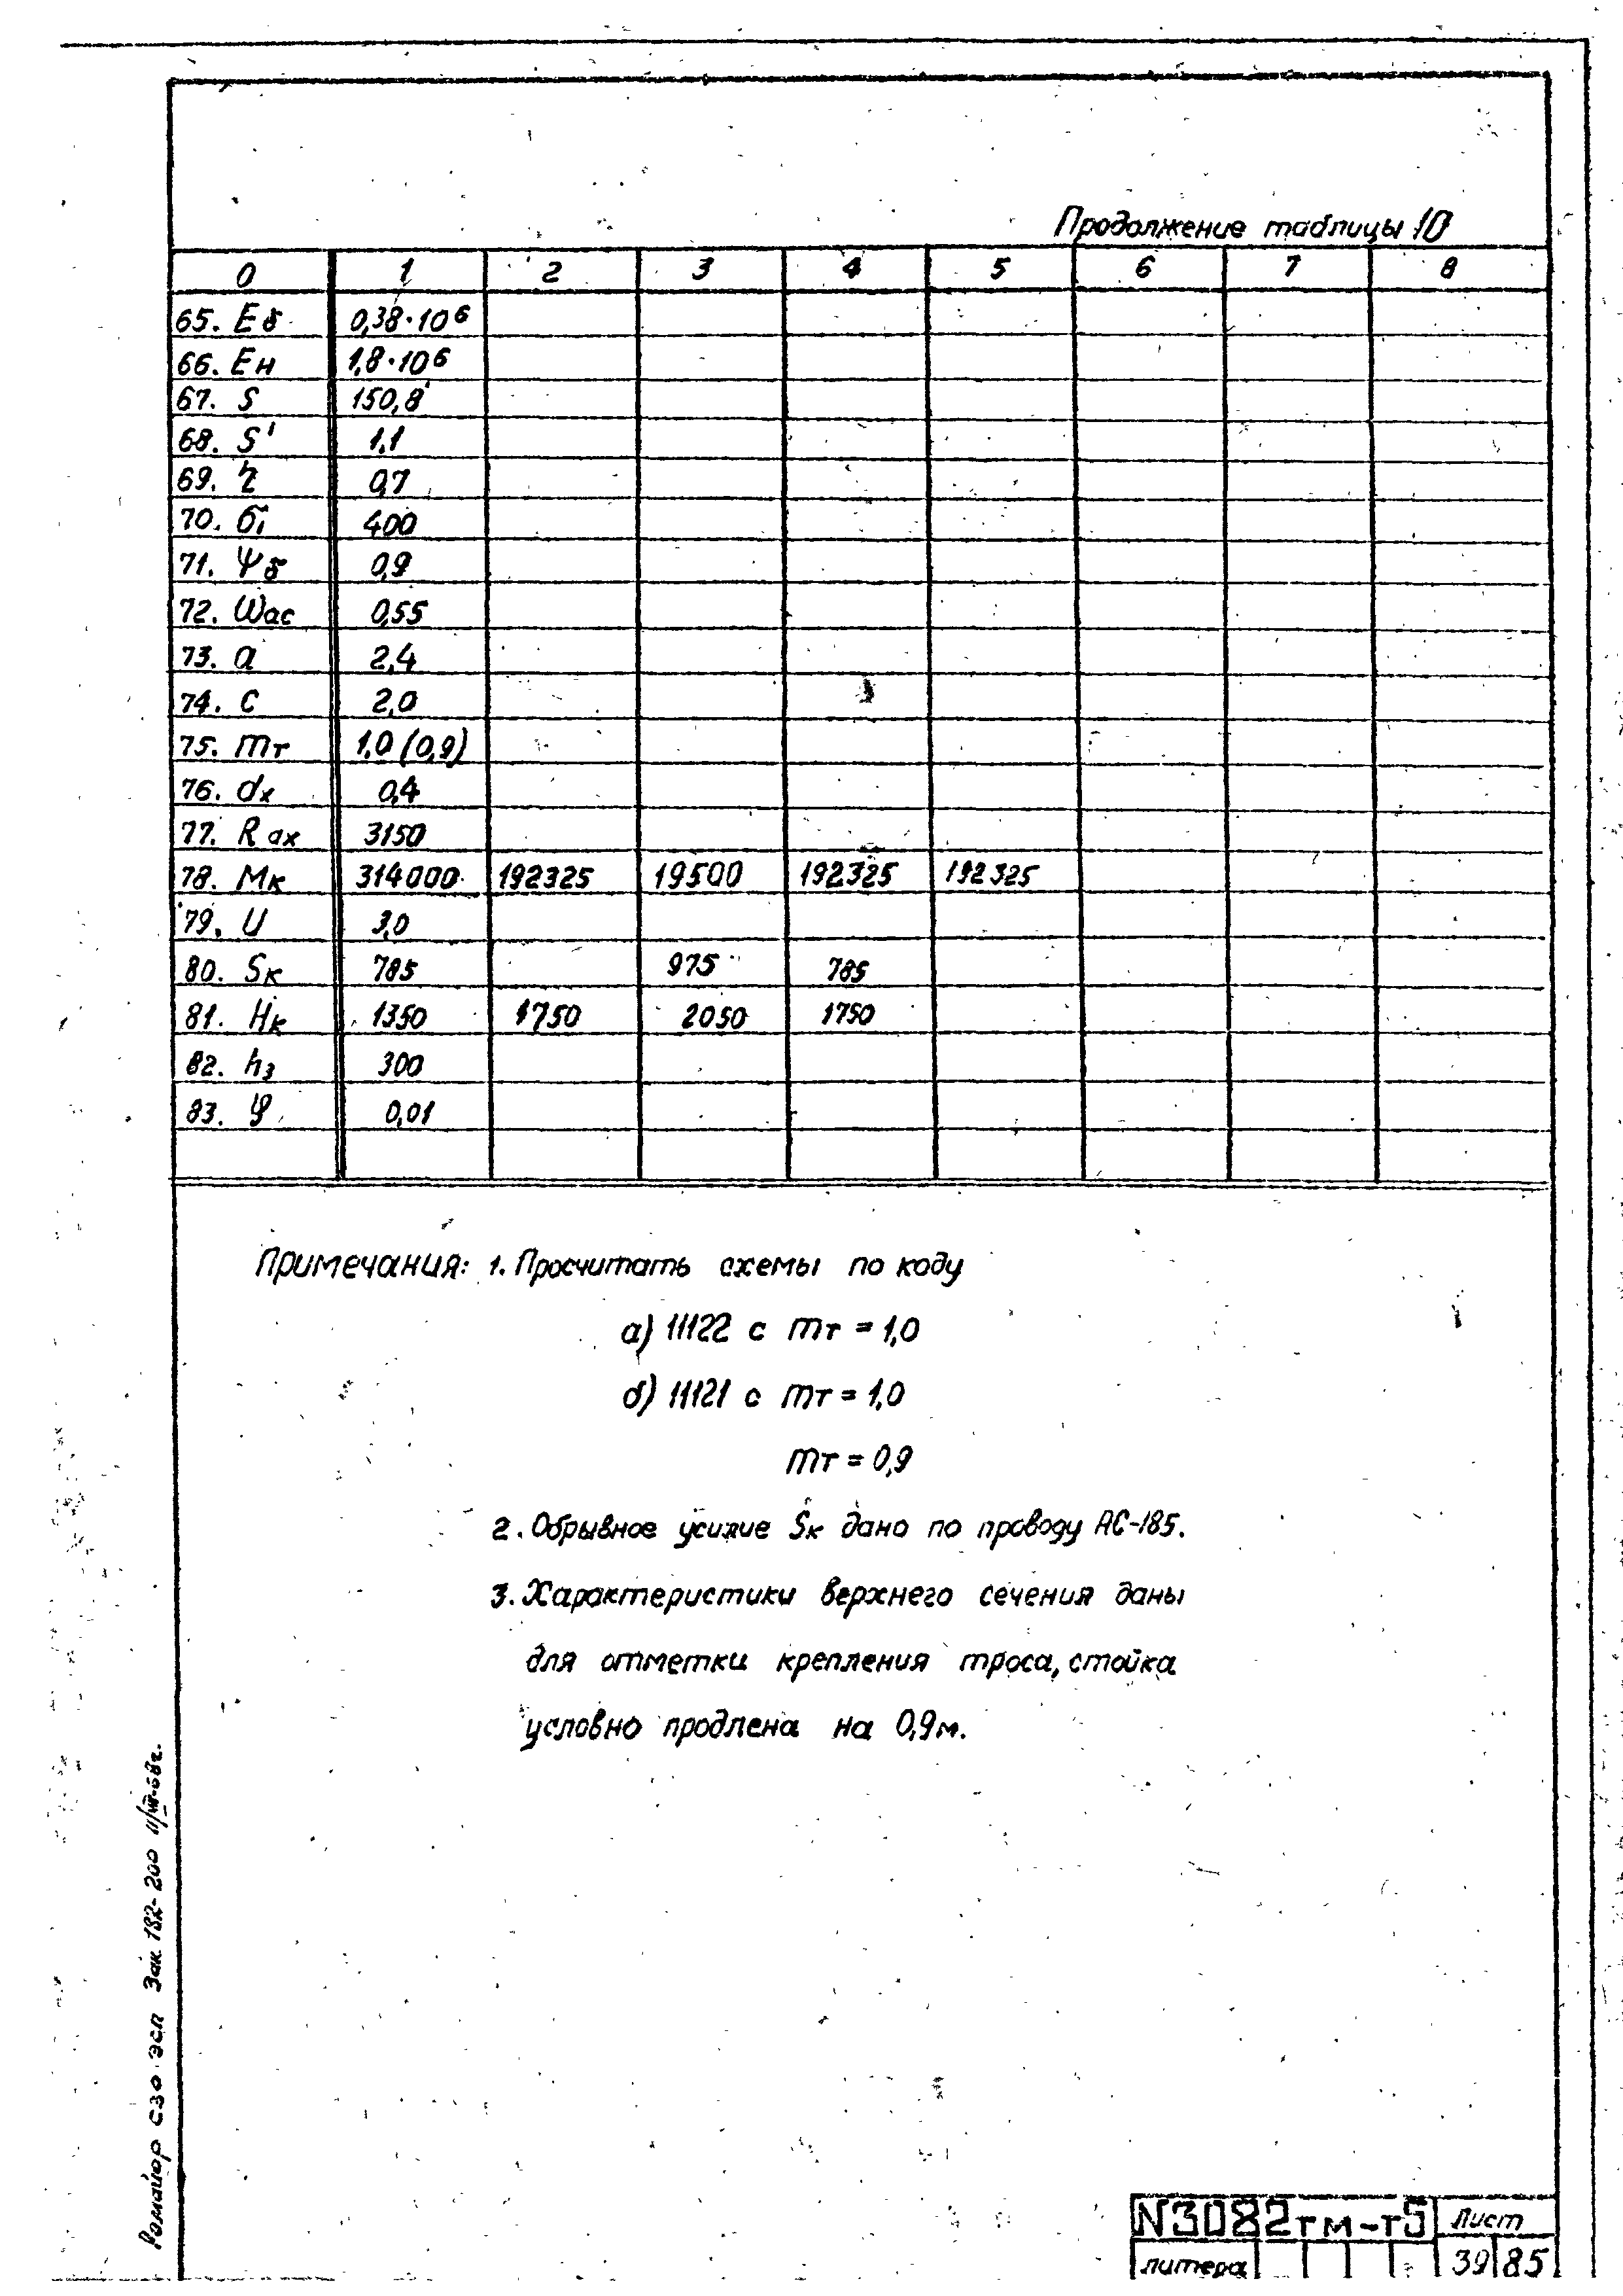 Продолжение таблицы 10
0 1 2 3 4 5 6 7 8
65. Eб 0,38·10⁶
66. Eн 1,8·10⁶
67. S 150,8
68. S' 1,1
69. 0,7
70. σ₁ 400
71. Ψб 0,9
72. Wас 0,55
73. a 2,4
74. C 2,0
75. mт 1,0 (0,9)
76. dx 0,4
77. R ax 3150
78. Mк 314000 192325 19500 192325 192325
79. U 3,0
80. Sк 785 975 785
81. Hк 1350 1750 2050 1750
82. h₃ 300
83. φ 0,01
Примечания: 1. Просчитать схемы по коду
а) 11122 с mт = 1,0
б) 11121 с mт = 1,0
mт = 0,9
2. Обрывное усилие Sк дано по проводу АС-185.
3. Характеристики верхнего сечения даны
для отметки крепления троса, стойка
условно продлена на 0,9м.
Ромайор СЗО ЭСП Зак 182-200 11/VII-68г.
N3082тм-т5 Лист
литера 39 85